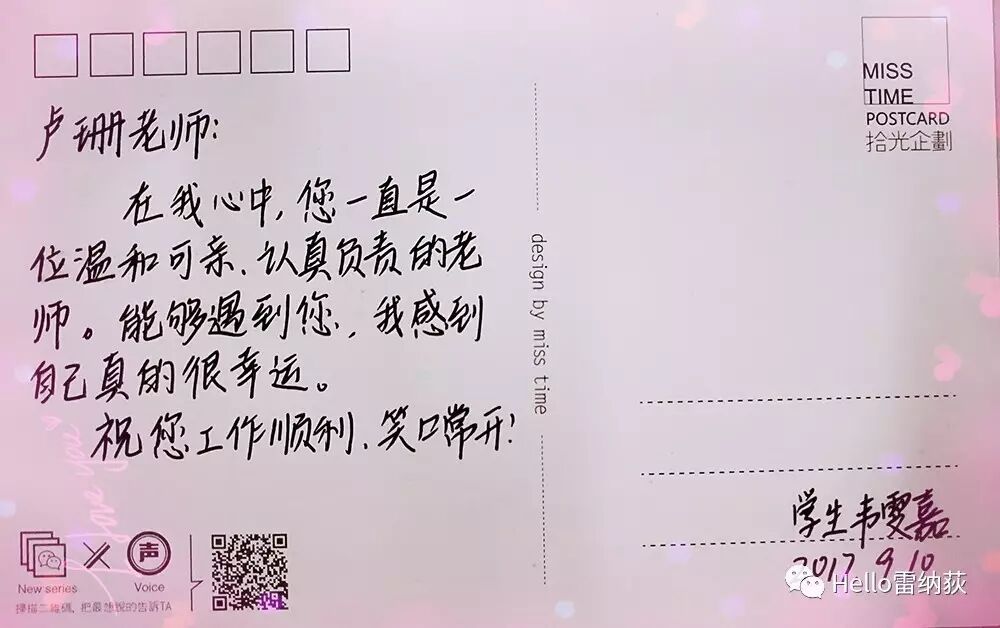 卢珊老师：
在我心中，您一直是一
位温和可亲、认真负责的老
师。能够遇到您，我感到
自己真的很幸运。
祝您工作顺利、笑口常开！
MISS
TIME
POSTCARD
拾光企劃
design by miss time
学生韦雯嘉
2017 9 10
I Love you
New series
声
Voice
掃描二維碼，把最想説的告訴TA
Hello雷纳荻